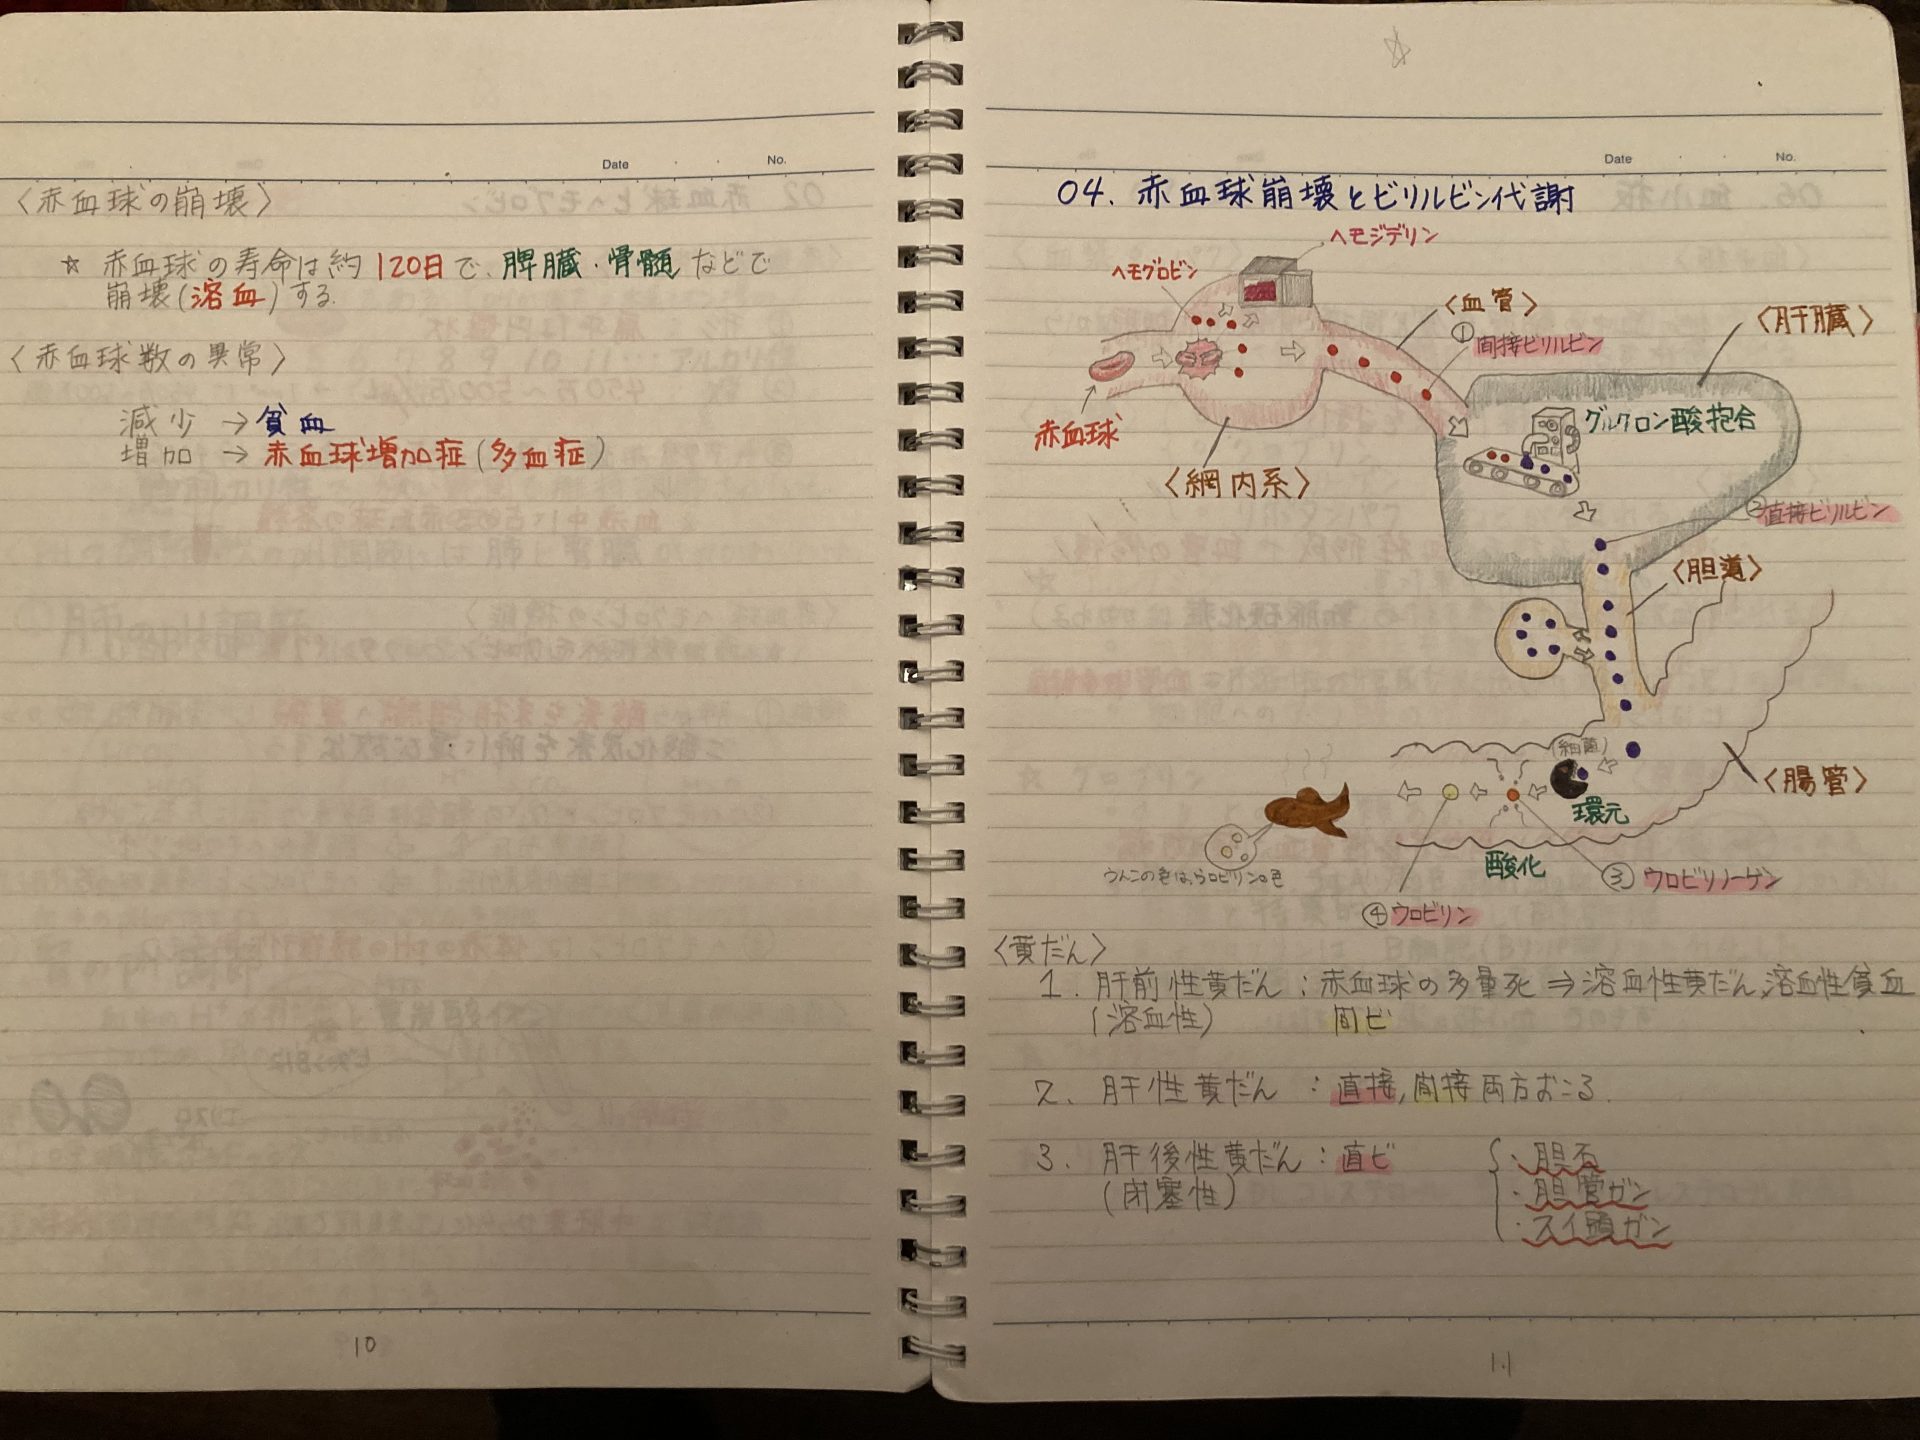 Date No.
〈赤血球の崩壊〉
☆ 赤血球の寿命は約120日で、脾臓・骨髄などで
崩壊(溶血)する.
〈赤血球数の異常〉
減少 → 貧血
増加 → 赤血球増加症(多血症)
10
Date No.
04. 赤血球崩壊とビリルビン代謝
ヘモジデリン
ヘモグロビン
〈血管〉
① 間接ビリルビン
〈肝臓〉
赤血球
グルクロン酸抱合
〈網内系〉
②直接ビリルビン
〈胆道〉
(細菌)
〈腸管〉
還元
うんこの色は、ウロビリンの色
酸化
③ ウロビリノーゲン
④ウロビリン
〈黄だん〉
1. 肝前性黄だん : 赤血球の多量死 ⇒ 溶血性黄だん,溶血性貧血
(溶血性) 間ビ
2. 肝性黄だん : 直接,間接両方おこる.
3. 肝後性黄だん : 直ビ
(閉塞性)
・胆石
・胆管ガン
・スイ頭ガン
11